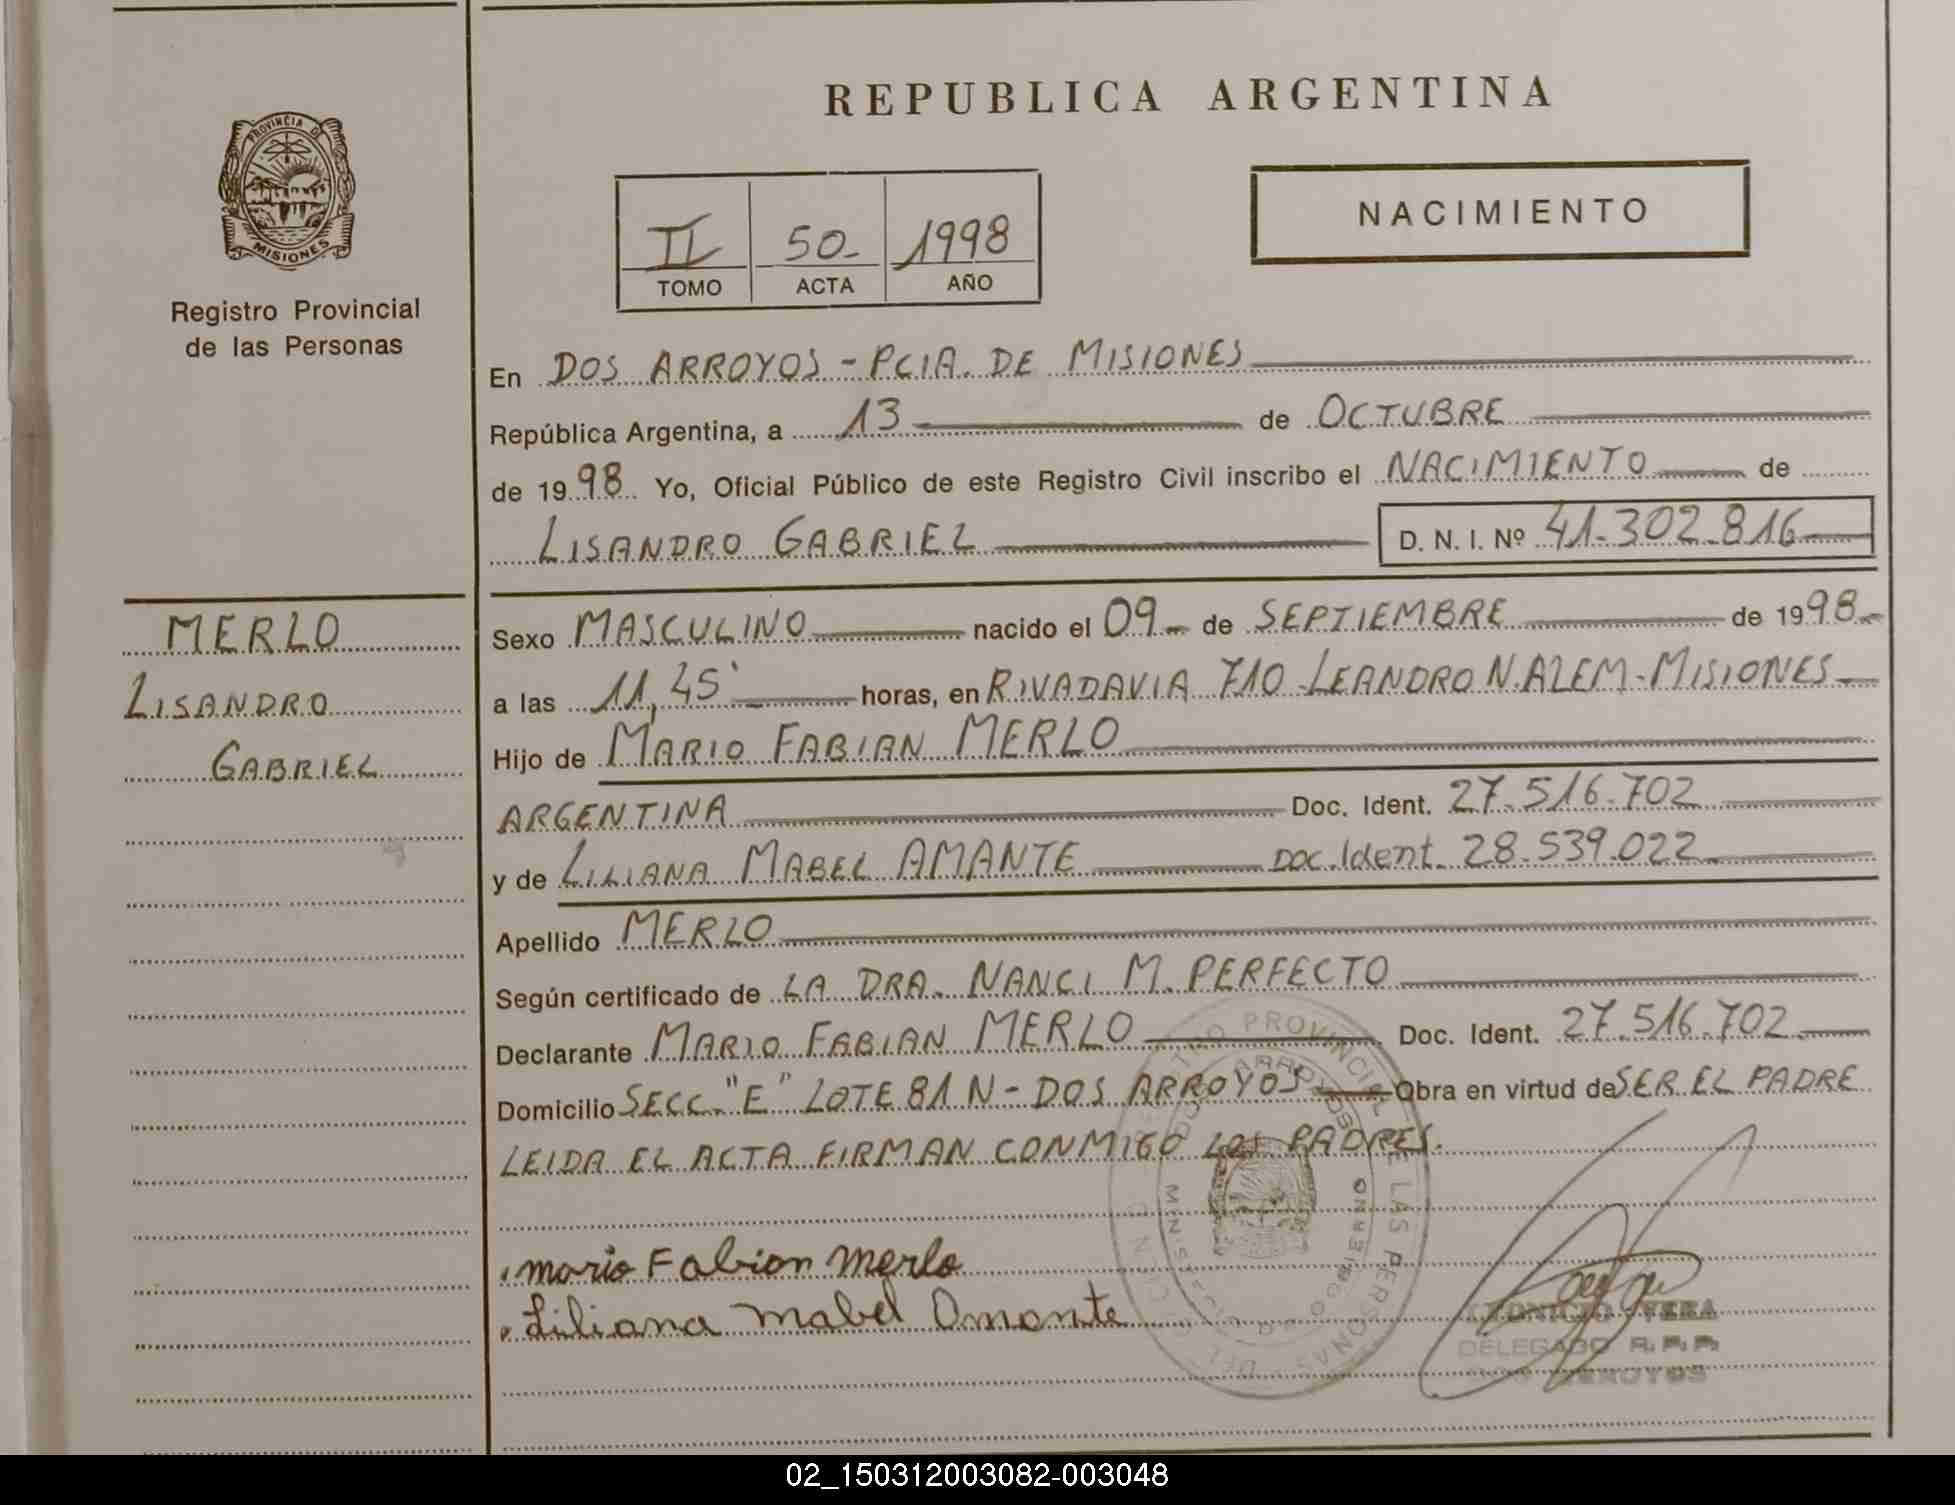 REPUBLICA ARGENTINA
PROVINCIA DE
MISIONES
Registro Provincial
de las Personas
II 50- 1998
TOMO ACTA AÑO
NACIMIENTO
En DOS ARROYOS - PCIA. DE MISIONES
República Argentina, a 13 de OCTUBRE
de 1998 Yo, Oficial Público de este Registro Civil inscribo el NACIMIENTO de
LISANDRO GABRIEL D. N. I. Nº 41.302.816
MERLO
LISANDRO
GABRIEL
Sexo MASCULINO nacido el 09 de SEPTIEMBRE de 1998.
a las 11,45' horas, en RIVADAVIA 710 - LEANDRO N. ALEM - MISIONES
Hijo de MARIO FABIAN MERLO
ARGENTINA Doc. Ident. 27.516.702
y de LILIANA MABEL AMANTE DOC. Ident. 28.539.022
Apellido MERLO
Según certificado de LA DRA. NANCI M. PERFECTO
Declarante MARIO FABIAN MERLO Doc. Ident. 27.516.702
Domicilio SECC. "E" LOTE 81 N - DOS ARROYOS Obra en virtud de SER EL PADRE
LEIDA EL ACTA FIRMAN CONMIGO LOS PADRES.
Mario Fabian Merlo
Liliana Mabel Amante
PROVINCIAL DE LAS PERSONAS
DOS ARROYOS
VERA
DELEGADO R.P.P.
ARROYOS
02_150312003082-003048